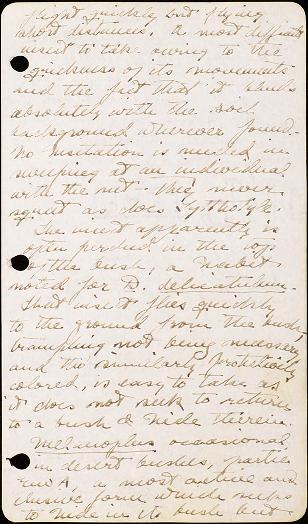 flight quickly and flying
short distances, a most difficult
insect to take owing to the
quickness of its movements
and the fact that it blends
absolutely with the soil
background wherever found.
No hesitation is needed in
swooping at an individual
with the net this never
squat as does
The insect apparently is
often perched in the top
of the bush, a habit
noted for D. delicatulum.
That insect flies quickly
to the ground from the bush,
tramping not being necessary
and tho similarly protectively
colored, is easy to take as
it does not seek to return
to a bush & hide therein.
Melanoplus occasional
in desert bushes,
a most active and
elusive form which seeks
to hide in its bush but